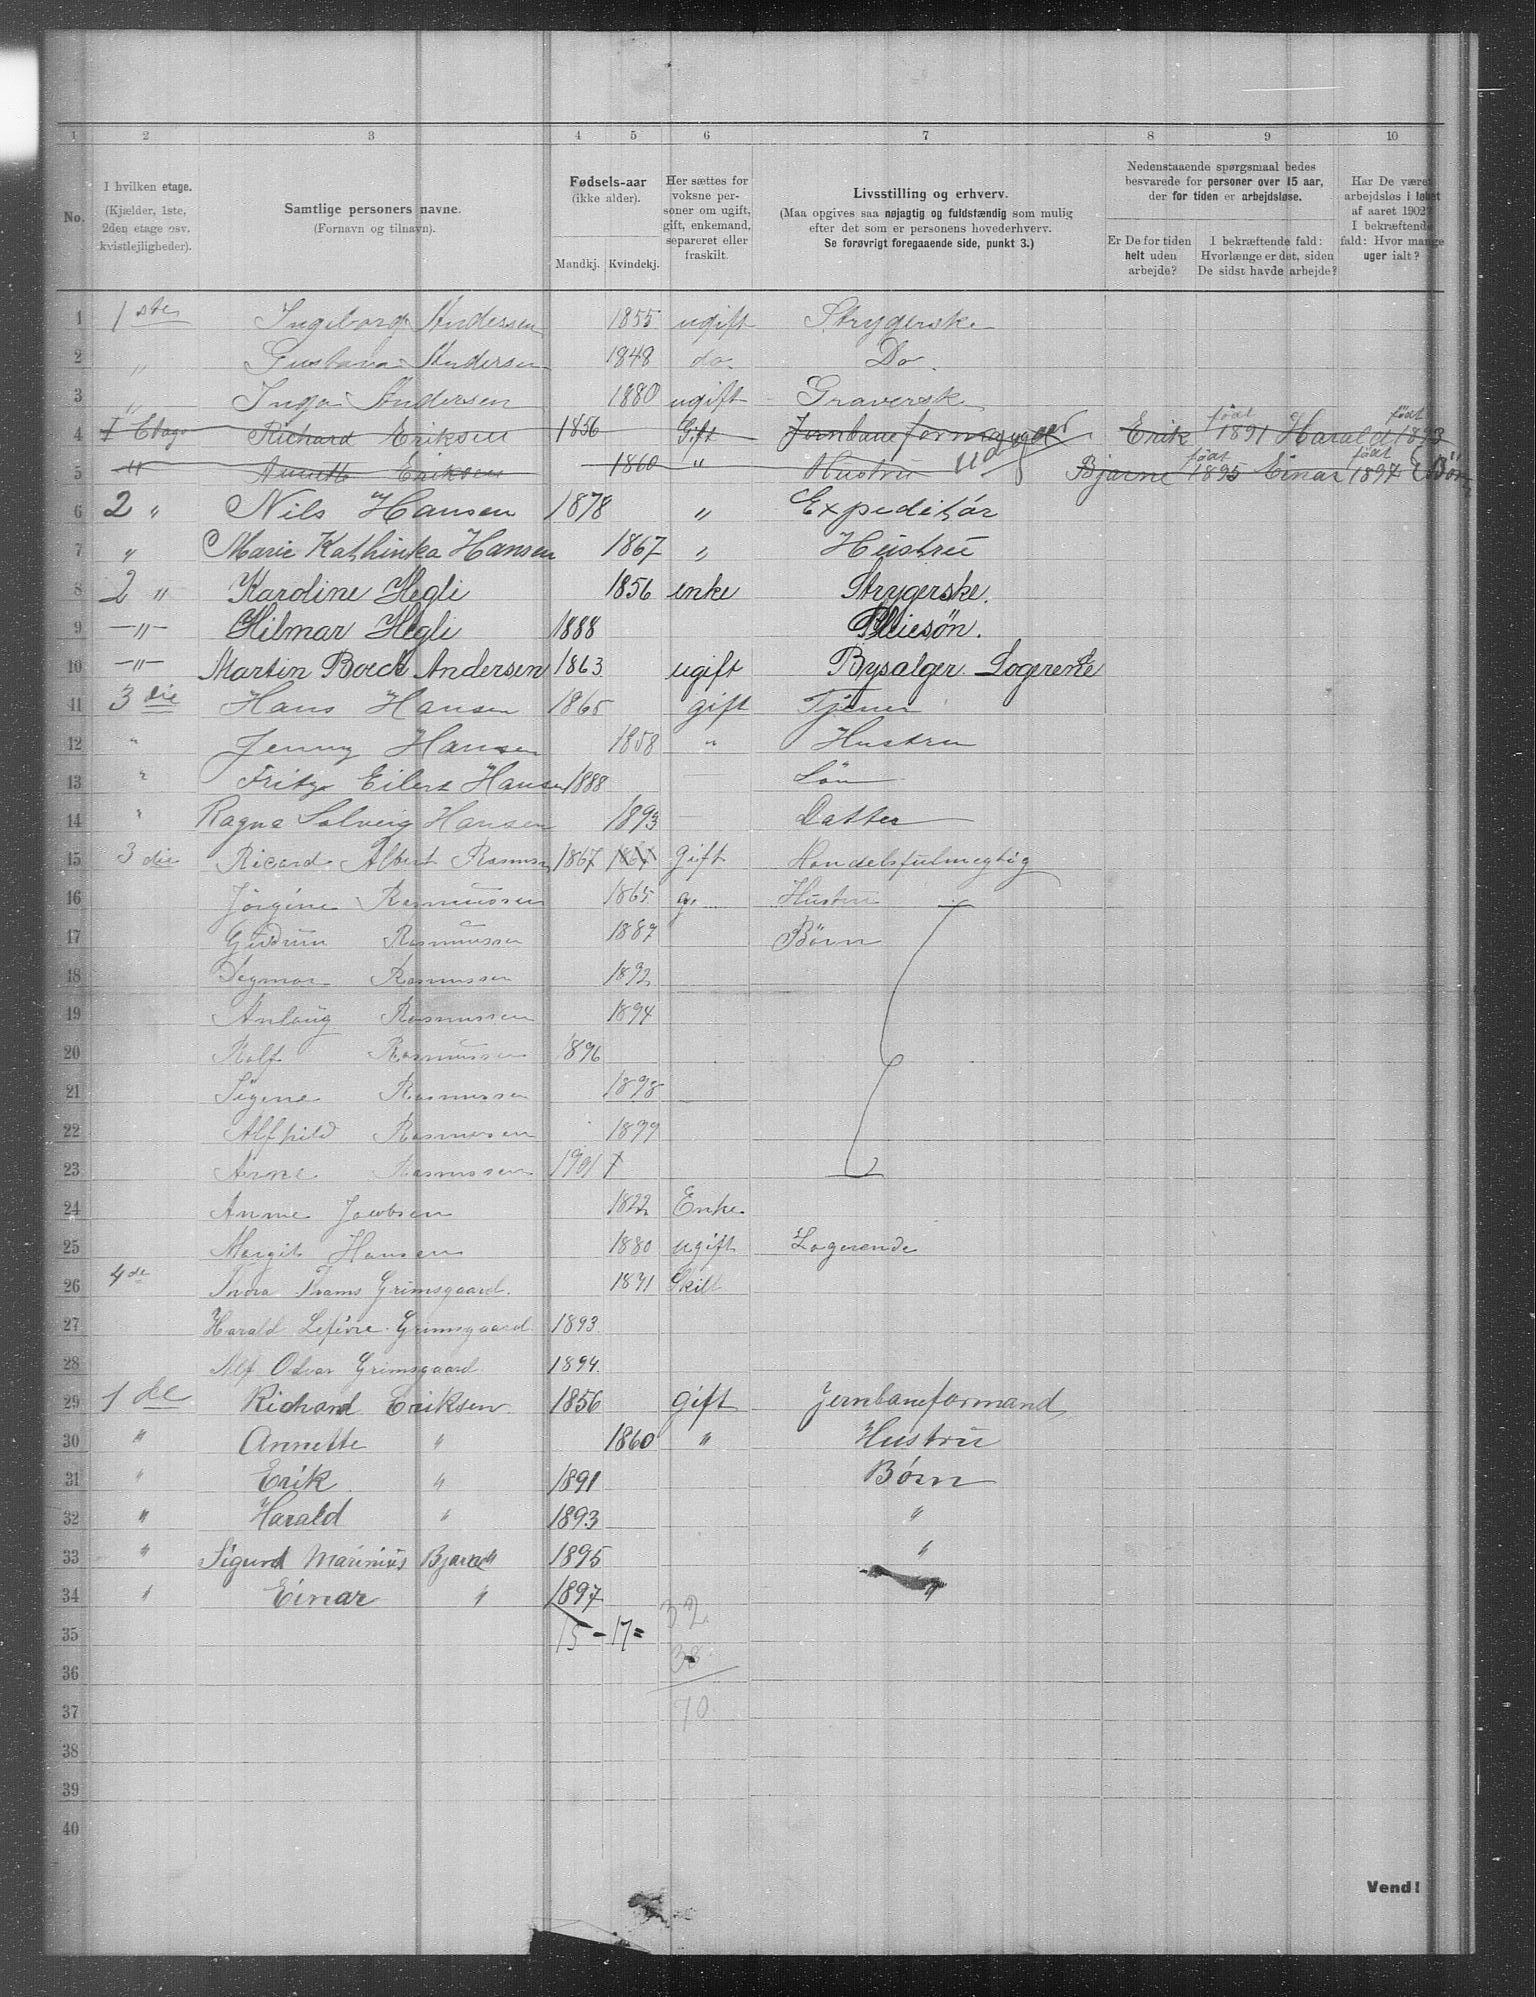 1 2 3 4 5 6 7 8 9 10
No.
I hvilken etage.
(Kjælder, 1ste,
2den etage osv.
kvistlejligheder).
Samtlige personers navne.
(Fornavn og tilnavn).
Fødsels-aar
(ikke alder).
Mandkj. Kvindekj.
Her sættes for
voksne per-
soner om ugift,
gift, enkemand,
separeret eller
fraskilt.
Livsstilling og erhverv.
(Maa opgives saa nøjagtig og fuldstændig som mulig
efter det som er personens hovederhverv.
Se forøvrigt foregaaende side, punkt 3.)
Nedenstaaende spørgsmaal bedes
besvarede for personer over 15 aar,
der for tiden er arbejdsløse.
Er De for tiden
helt uden
arbejde?
I bekræftende fald:
Hvorlænge er det, siden
De sidst havde arbejde?
Har De været
arbejdsløs i løbet
af aaret 1902?
I bekræftende
fald: Hvor mange
uger ialt?
1 1ste Ingeborg Andersen 1855 ugift Strygerske
2 " Gustava Andersen 1848 do. Do.
3 " Inga Andersen 1880 ugift Graverske
4 I Etage Richard Eriksen 1856 Gift Erik født 1891 Harald født 1893
5 " Annette Eriksen 1860 " Hustru Bjarne født 1895 Einar født 1897 Børn
6 2 " Nils Hansen 1878 " Expeditør
7 " Marie Kathinka Hansen 1867 " Hustru
8 2 " Karoline Hegli 1856 enke Strygerske.
9 " Hilmar Hegli 1888 Pleiesøn.
10 " Martin Boeck Andersen 1863 ugift Bysælger Logerende
11 3die Hans Hansen 1865 gift Tjener
12 " Jenny Hansen 1858 " Hustru
13 " Fritz Eilert Hansen 1888 Søn
14 " Ragna Solveig Hansen 1893 Datter
15 3die Ricard Albert Rasmussen 1867 1867 Gift Handelsfulmegtig
16 Jørgine Rasmussen 1865 g. Hustru
17 Gudrun Rasmussen 1887 Børn
18 Dagmar Rasmussen 1892
19 Anlaug Rasmussen 1894
20 Rolf Rasmussen 1896
21 Signe Rasmussen 1898
22 Alfhild Rasmussen 1899
23 Arne Rasmussen 1901
24 Anne Jacobsen 1822 Enke
25 Margit Hansen 1880 ugift Logerende
26 4de Thora Grimsgaard. 1871 Skilt
27 Harald Lefévre Grimsgaard 1893
28 Alf Odvar Grimsgaard 1894.
29 1de Richard Eriksen 1856 gift Jernbaneformand
30 " Annette " 1860 " Hustru
31 " Erik " 1891 Børn
32 " Harald " 1893 "
33 " Sigurd Marinius Bjarne " 1895 "
34 " Einar " 1897 "
35 15 - 17 = 32
36 38
37 70
38
39
40
Vend!